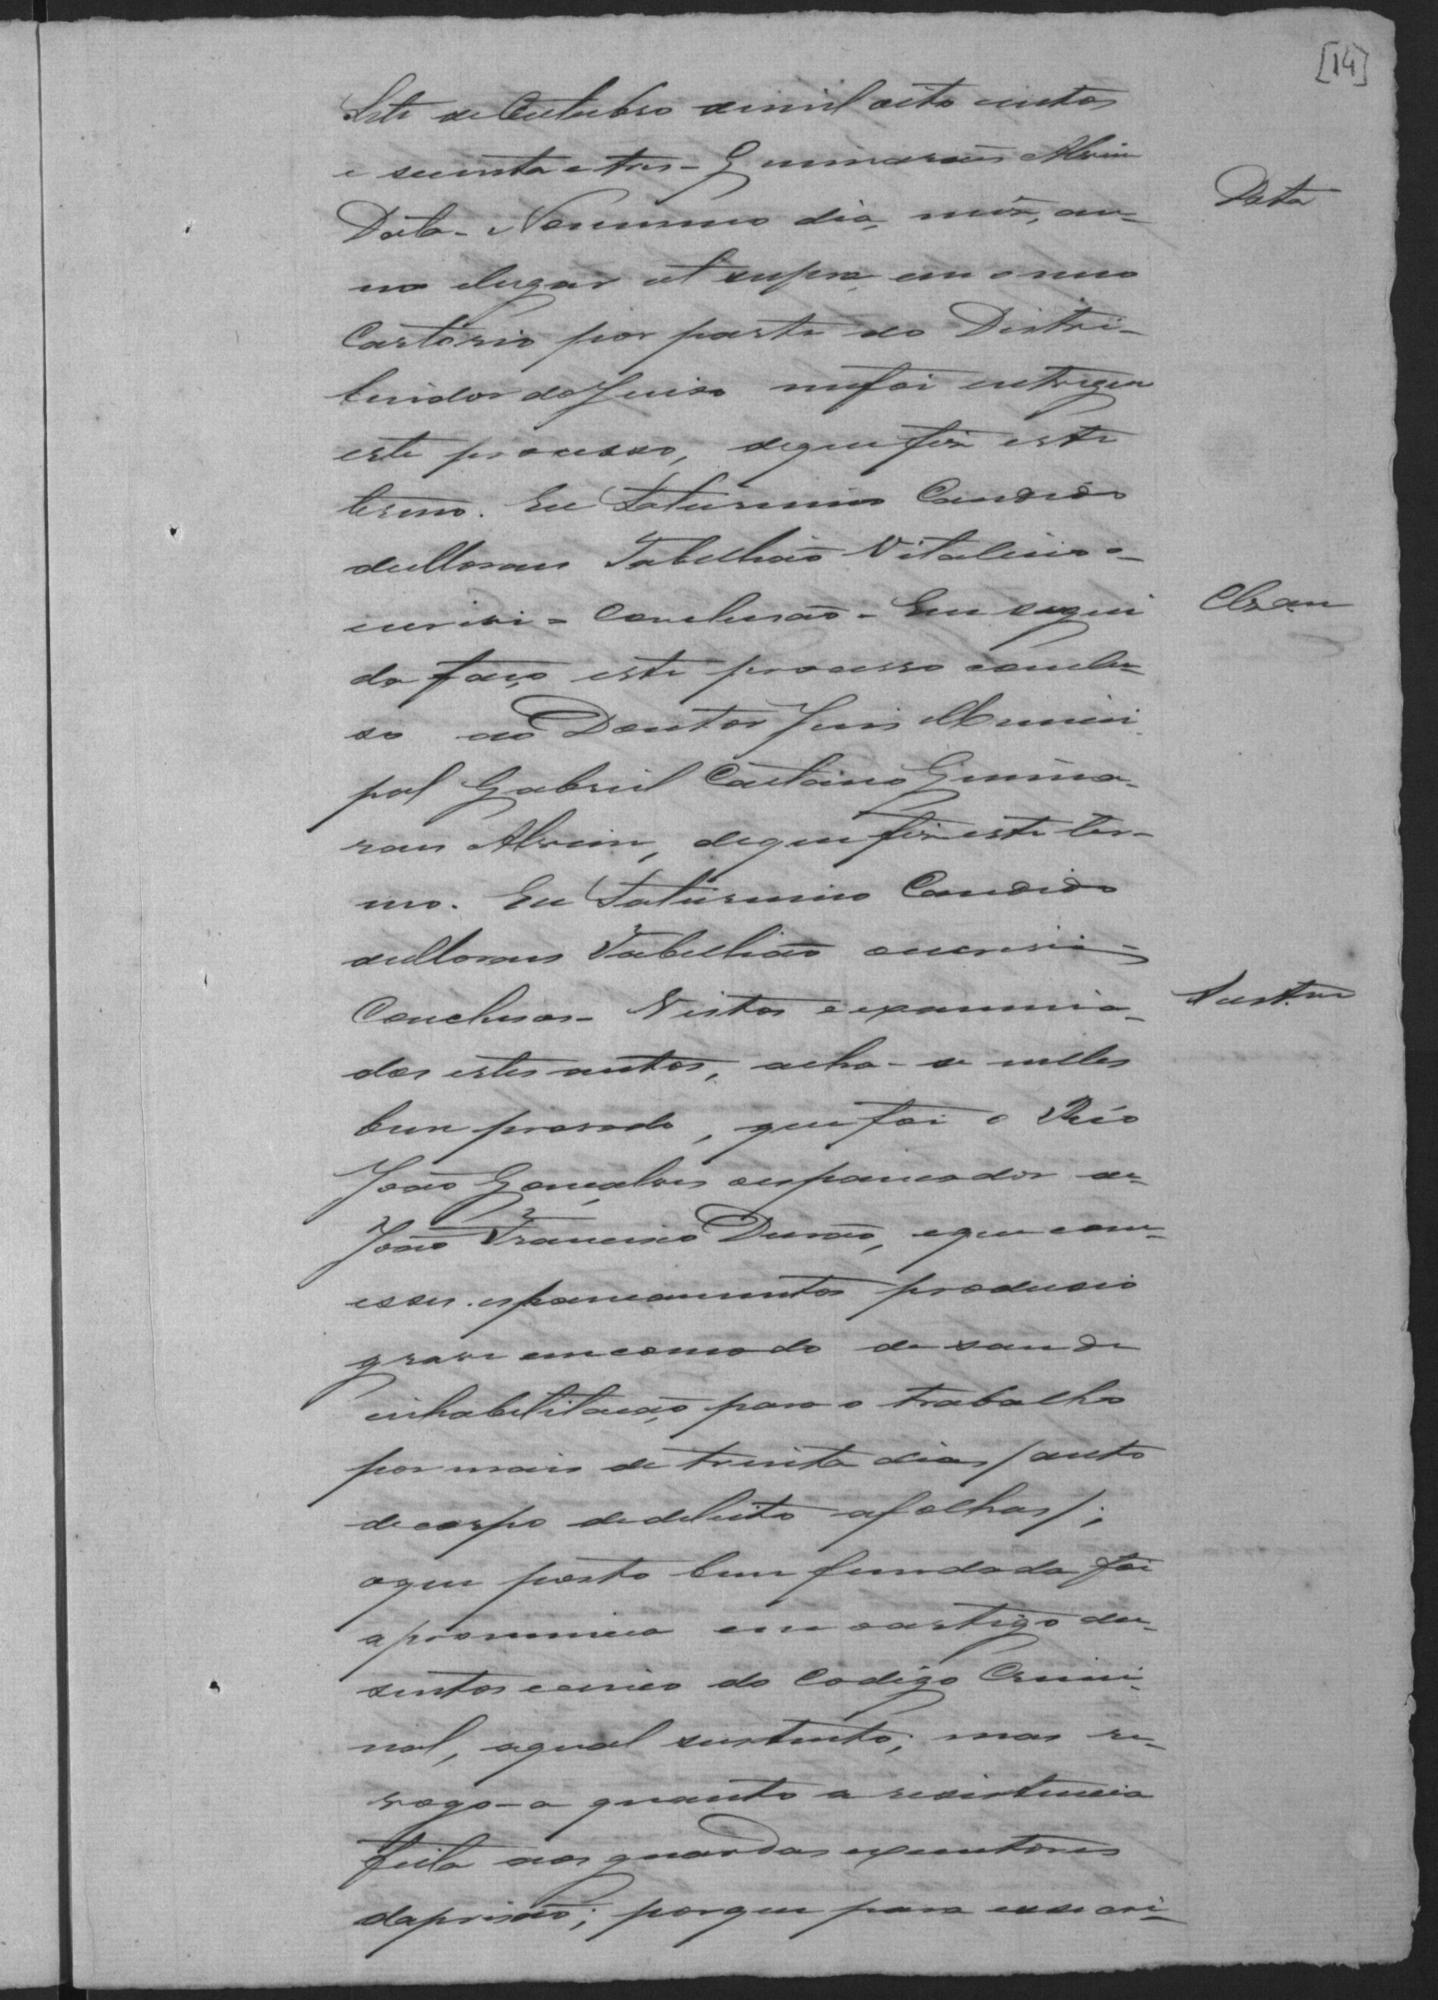 [14]
Sete de Outubro de mil oito centos
e secenta e tres - Guimaraens Alvim
Data
Data - No mesmo dia, mez, an-
no e lugar ut supra em o meo
Cartorio por parte do Distri-
buidor do Juiso me foi entregue
este processo, de que fiz este
termo. Eu Saturnino Candido
de Moraes Tabelhião Vitalicio o
escrivi - Conclusão - Em segui
Clsam
da faço este processo conclu-
so ao Doutor Juis Munici
pal Gabriel Caetano Guima-
raes Alvim, de que fiz este ter-
mo. Eu Saturnino Candido
de Moraes Tabelhião o escrivi -
Conclusos - Vistos e examina-
dos estes autos, acha-se nelles
bem provado, que foi o Réo
João Gonçalves o espancador de
João Francisco Durão, e que com
esses espancamentos produsio
grave encomodo de saude
inhabilitação para o trabalho
por mais de trinta dias / auto
de corpo de delicto a folhas /;
o que posto bem fundada foi
a pronuncia em o artigo du-
sentos e cinco do Codigo Crimi-
nal, a qual sustento; mas re-
vogo-a quanto a resistencia
feita aos guardas executores
da prisão; porque para esse cri-